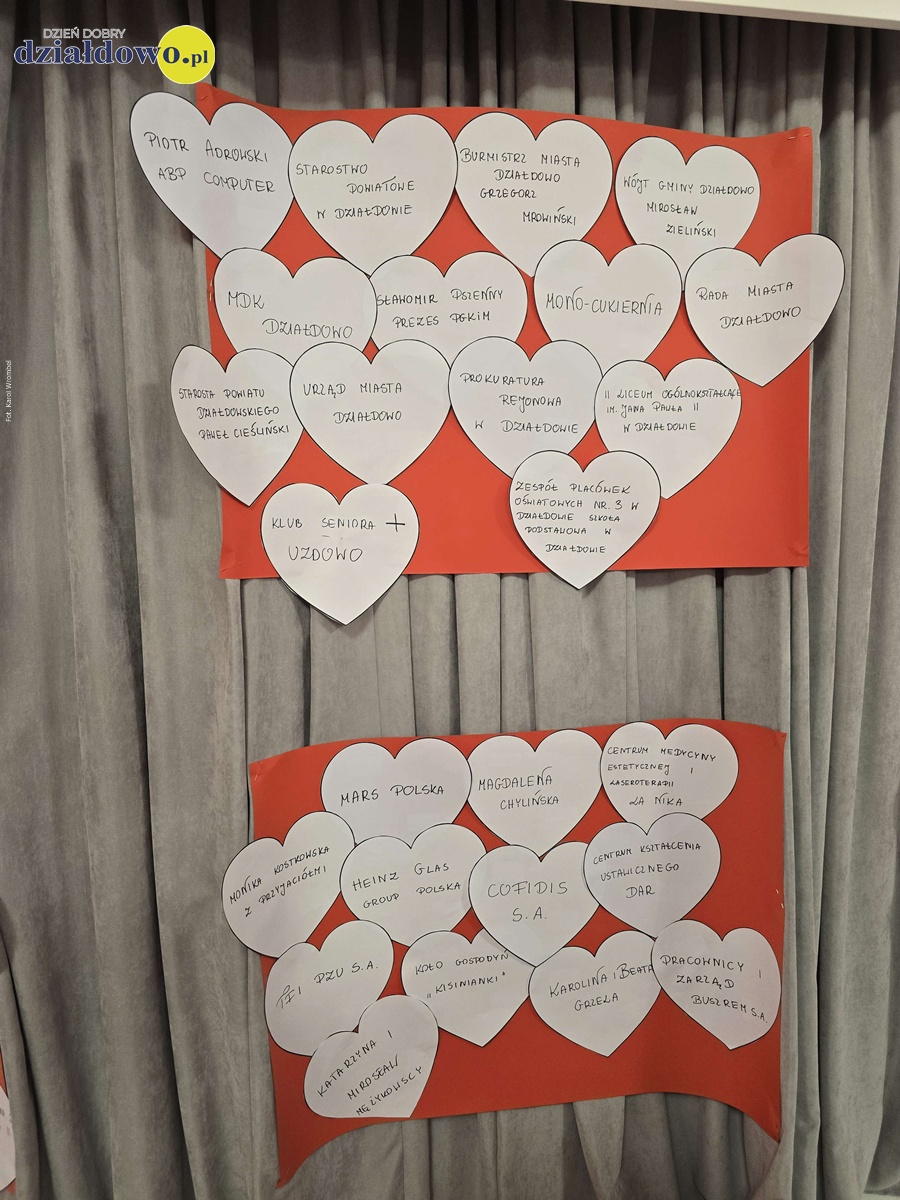 DZIEŃ DOBRY
działdowo.pl
Fot. Karol Wrombel
PIOTR ADROWSKI
ABP COMPUTER
STAROSTWO
POWIATOWE
W DZIAŁDOWIE
BURMISTRZ MIASTA
DZIAŁDOWO
GRZEGORZ
MROWIŃSKI
WÓJT GMINY DZIAŁDOWO
MIROSŁAW
ZIELIŃSKI
MDK
DZIAŁDOWO
SŁAWOMIR PSZENNY
PREZES PGKIM
MONO-CUKIERNIA
RADA MIASTA
DZIAŁDOWO
STAROSTA POWIATU
DZIAŁDOWSKIEGO
PAWEŁ CIEŚLIŃSKI
URZĄD MIASTA
DZIAŁDOWO
PROKURATURA
REJONOWA
W DZIAŁDOWIE
II LICEUM OGÓLNOKSZTAŁCĄCE
IM. JANA PAWŁA II
W DZIAŁDOWIE
KLUB SENIORA +
UZDOWO
ZESPÓŁ PLACÓWEK
OŚWIATOWYCH NR. 3 W
DZIAŁDOWIE SZKOŁA
PODSTAWOWA W
DZIAŁDOWIE
MARS POLSKA
MAGDALENA
CHYLIŃSKA
CENTRUM MEDYCYNY
ESTETYCZNEJ I
LASEROTERAPII
ŁA NIKA
MONIKA KOSTKOWSKA
Z PRZYJACIÓŁMI
HEINZ GLAS
GROUP POLSKA
COFIDIS
S.A.
CENTRUM KSZTAŁCENIA
USTAWICZNEGO
DAR
PZU S.A.
KOŁO GOSPODYŃ
„KISINIANKI"
KAROLINA I BEATA
GRZELA
PRACOWNICY I
ZARZĄD
BUSZREM S.A.
KATARZYNA I
MIROSŁAW
MĘŻYKOWSCY